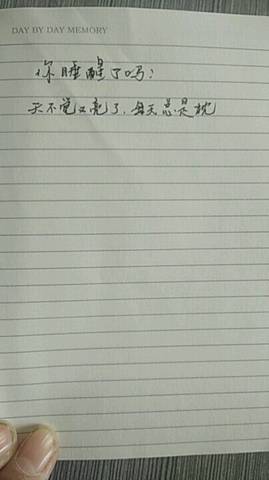 DAY BY DAY MEMORY
你睡醒了吗?
天不觉又亮了.每天总是忱